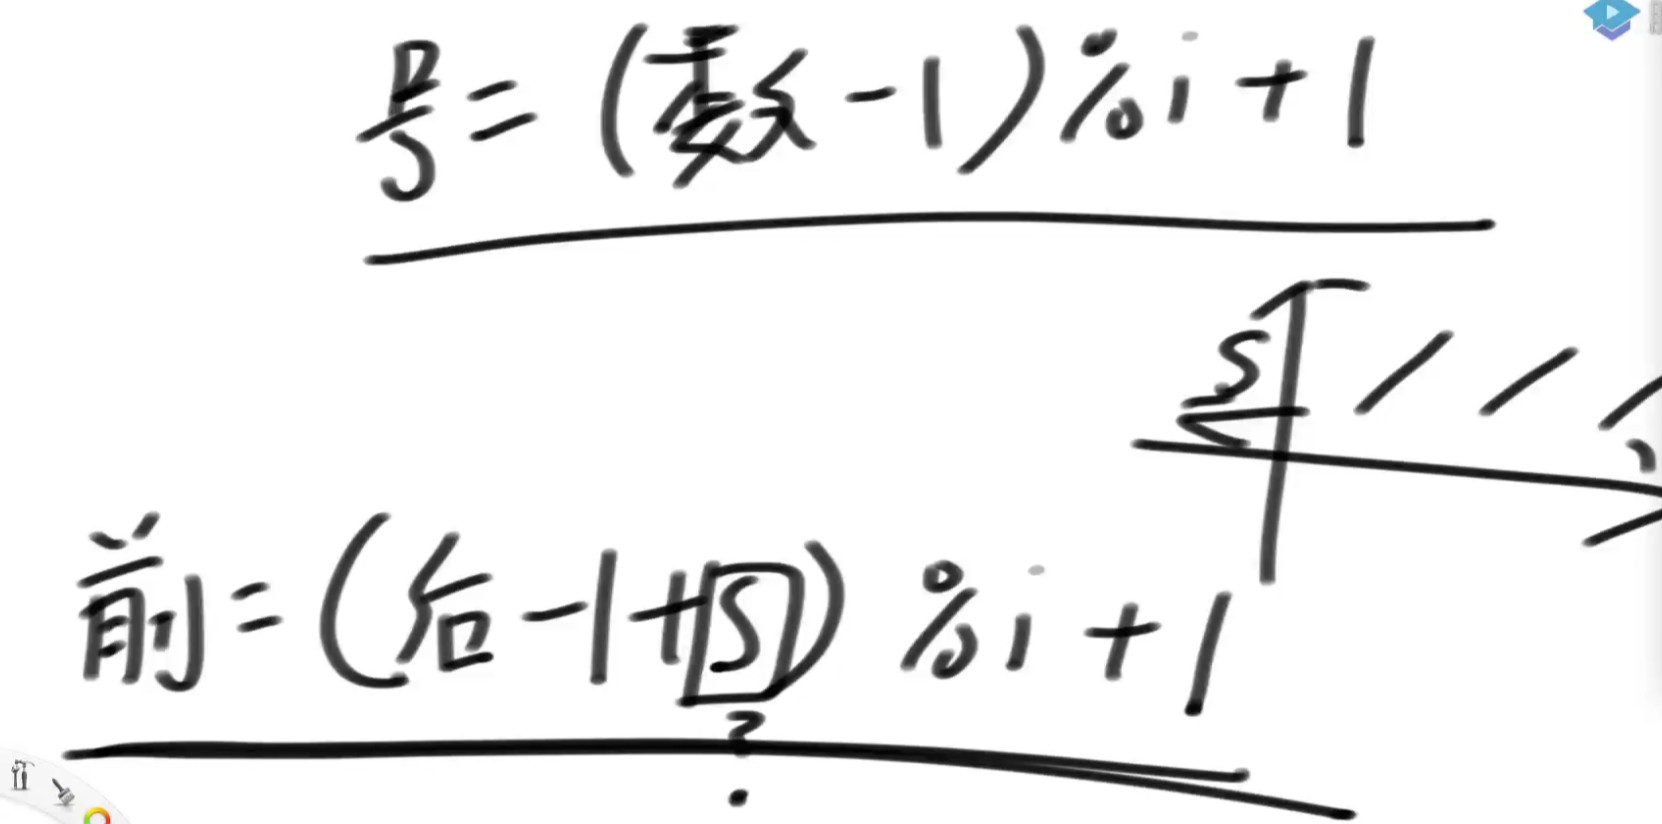 号=(数-1)%i+1
S
前=(后-1+S)%i+1
?